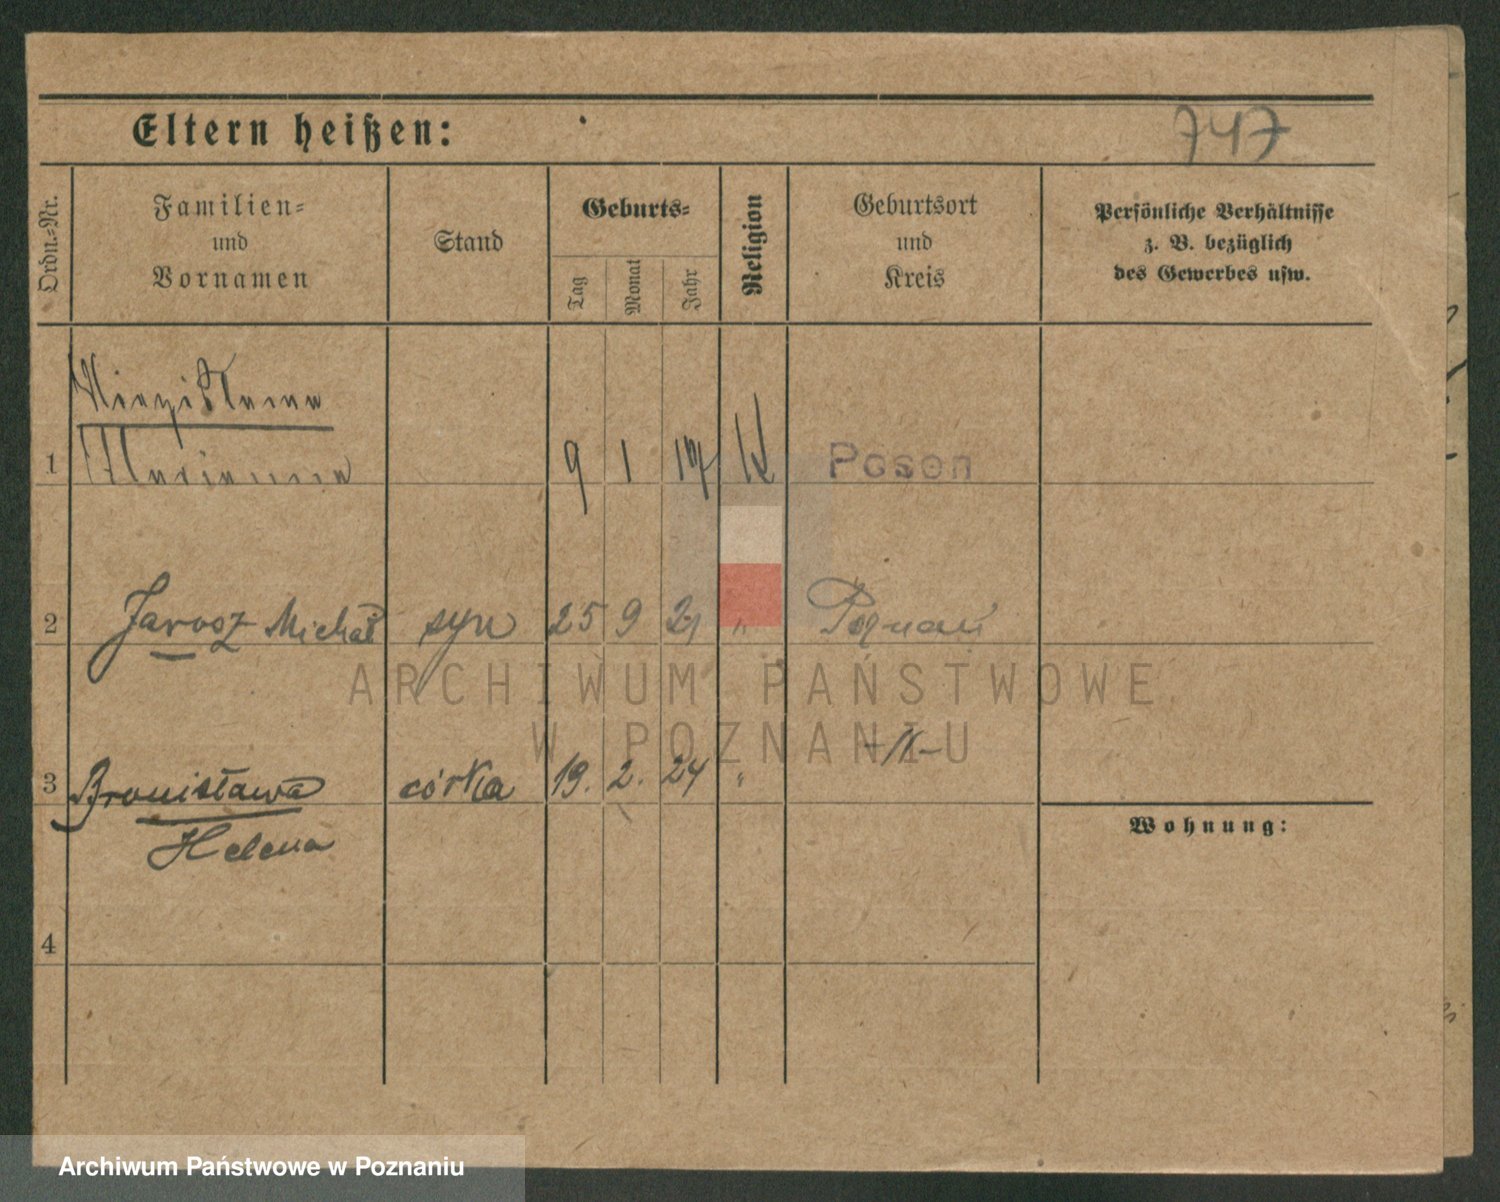 Eltern heißen:
747
Ordn.-Nr.
Familien-
und
Vornamen
Stand
Geburts-
Tag
Monat
Jahr
Religion
Geburtsort
und
Kreis
Persönliche Verhältnisse
z. B. bezüglich
des Gewerbes usw.
1 Marianna 9 1 17 K Posen
2 Jarosz Michał syn 25 9 21 " Poznań
ARCHIWUM PAŃSTWOWE
W POZNANIU
3 Bronisława córka 19. 2. 24 "
Helena
Wohnung:
4
Archiwum Państwowe w Poznaniu